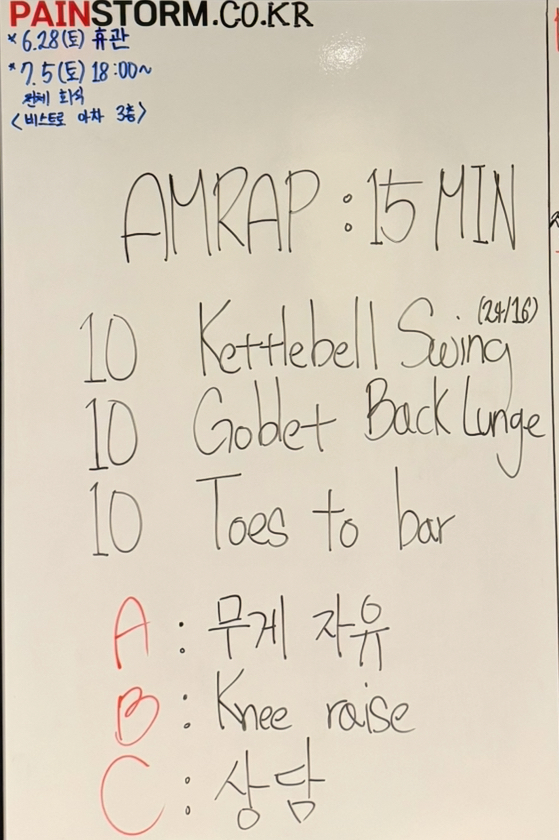 PAINSTORM.CO.KR
*6.28(토) 휴관
*7.5(토) 18:00~
전체 회식
<비스트로 아차 3층>
AMRAP : 15 MIN
10 Kettlebell Swing (24/16)
10 Goblet Back Lunge
10 Toes to bar
A : 무게 자유
B : Knee raise
C : 상담